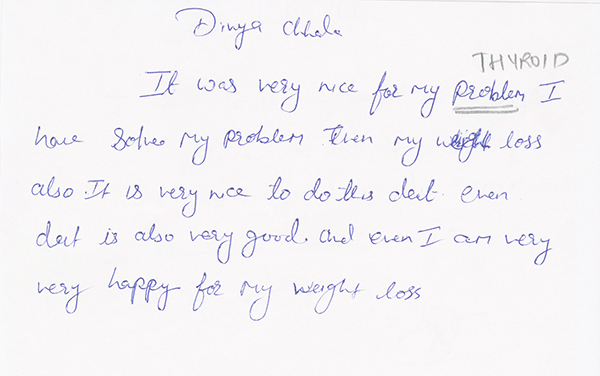 Divya Chheda
THYROID
It was very nice for my problem I
have solve my problem then my weight loss
also. It is very nice to do this deit. even
deit is also very good. And even I am very
very happy for my weight loss